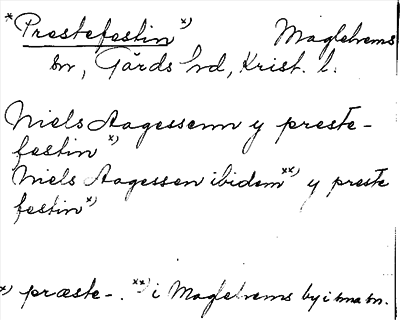 *Prestefestin x) Maglehems
sn, Gärds hd, Krist. l.
Niels Aagessenn y preste-
festin x)
Niels Aagessen ibidem xx) y preste
festin x)
x) præste-. xx) i Maglehems by i sna sn.